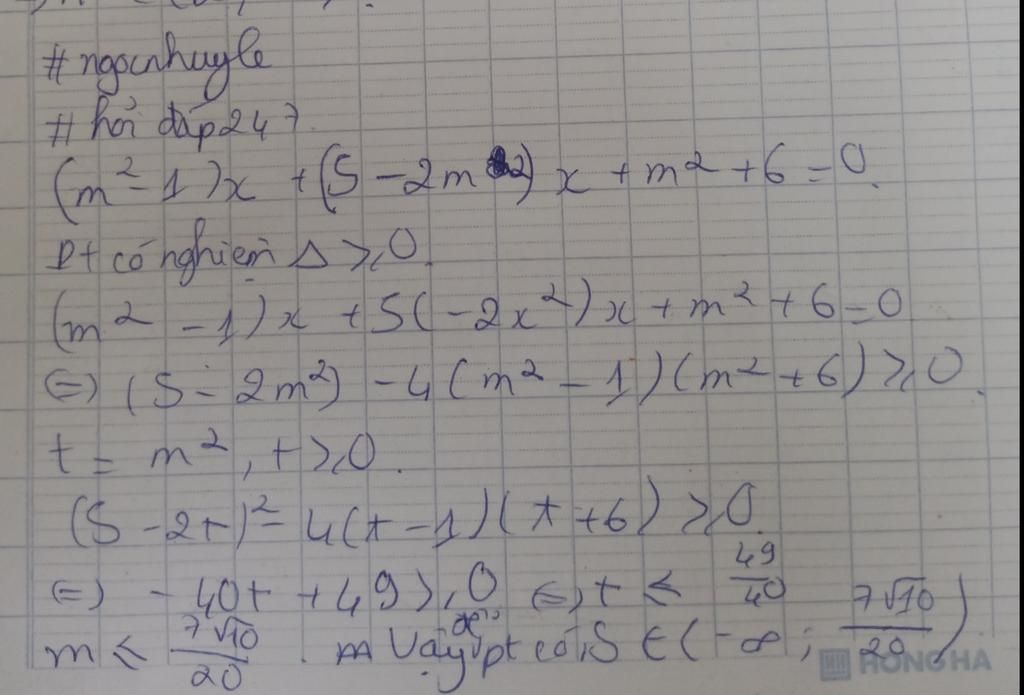 #ngocnhuyle
#hỏi đáp247
(m² - 1)x + (5 - 2m²)x + m² + 6 = 0.
Pt có nghiệm Δ ⩾ 0.
(m² - 1)x + 5(-2x²)x + m² + 6 = 0
⇔ (5 - 2m²) - 4(m² - 1)(m² + 6) ⩾ 0.
t = m², t ⩾ 0.
(5 - 2t)² - 4(t - 1)(t + 6) ⩾ 0.
⇔ - 40t + 49 ⩾ 0 ⇔ t ⩽ 49/40
m ⩽ 7√10/20 . m Vậy pt có S ∈ (-∞; 7√10/20)
HONG HA